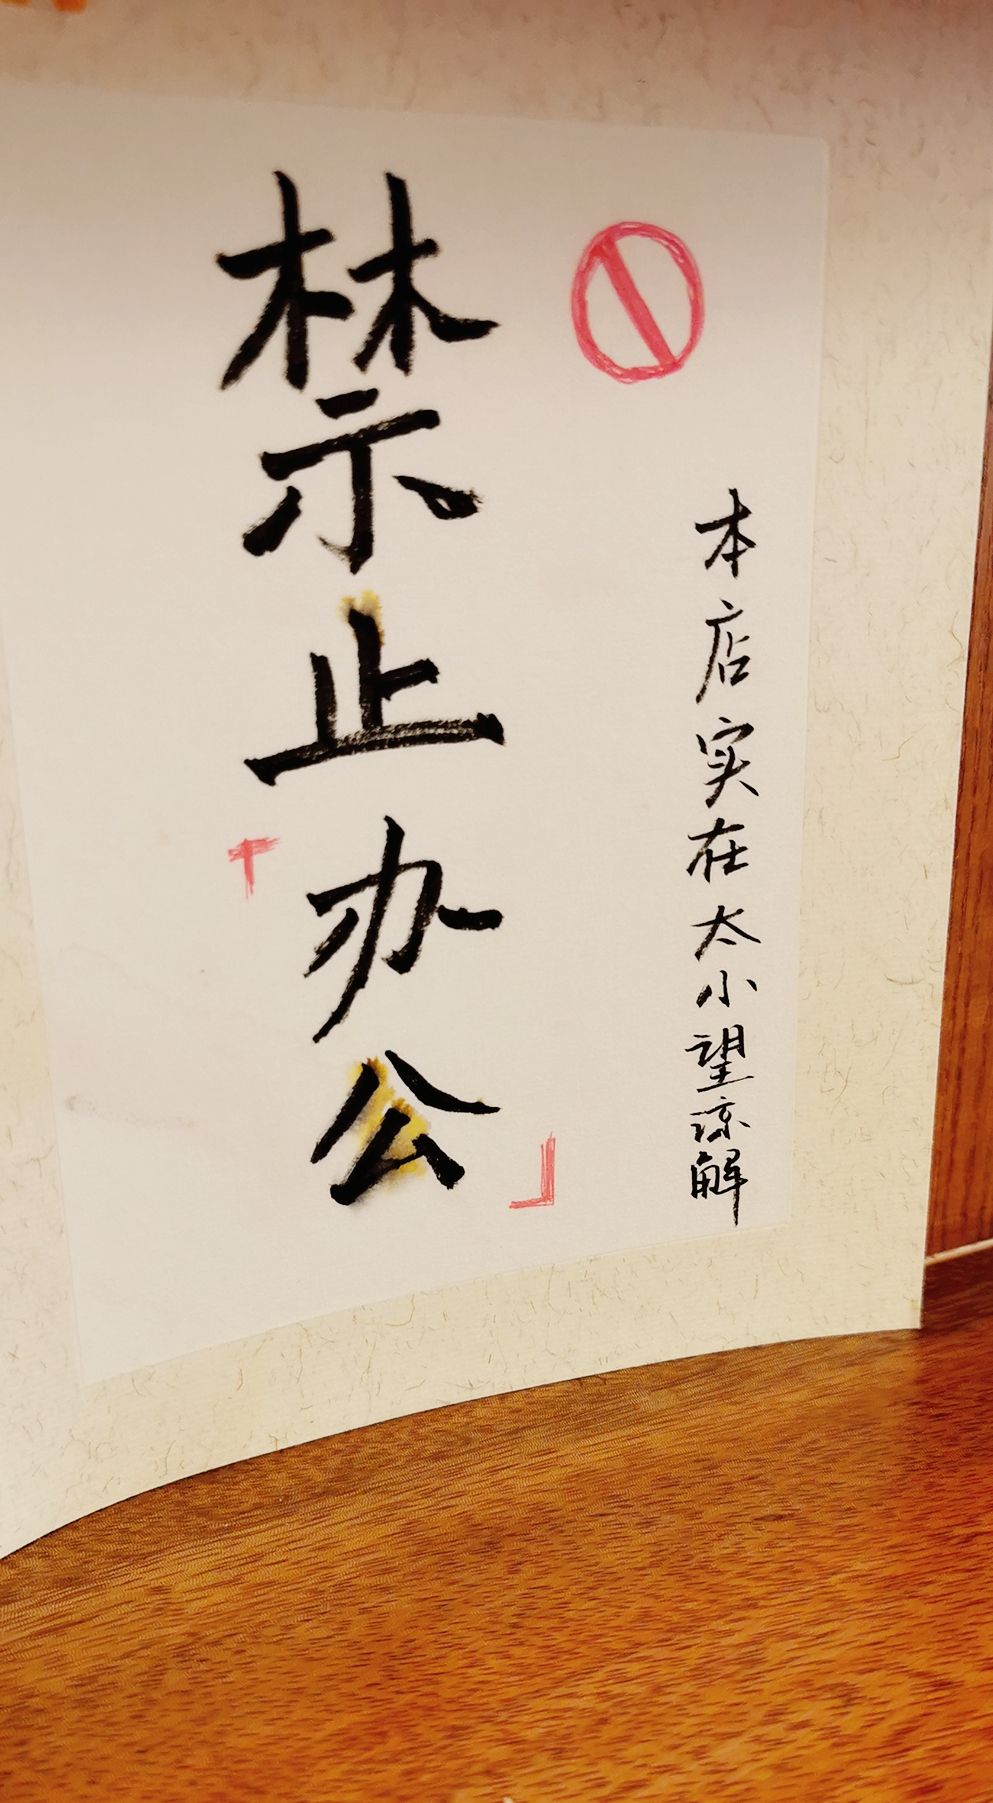 本店实在太小望谅解
禁止办公